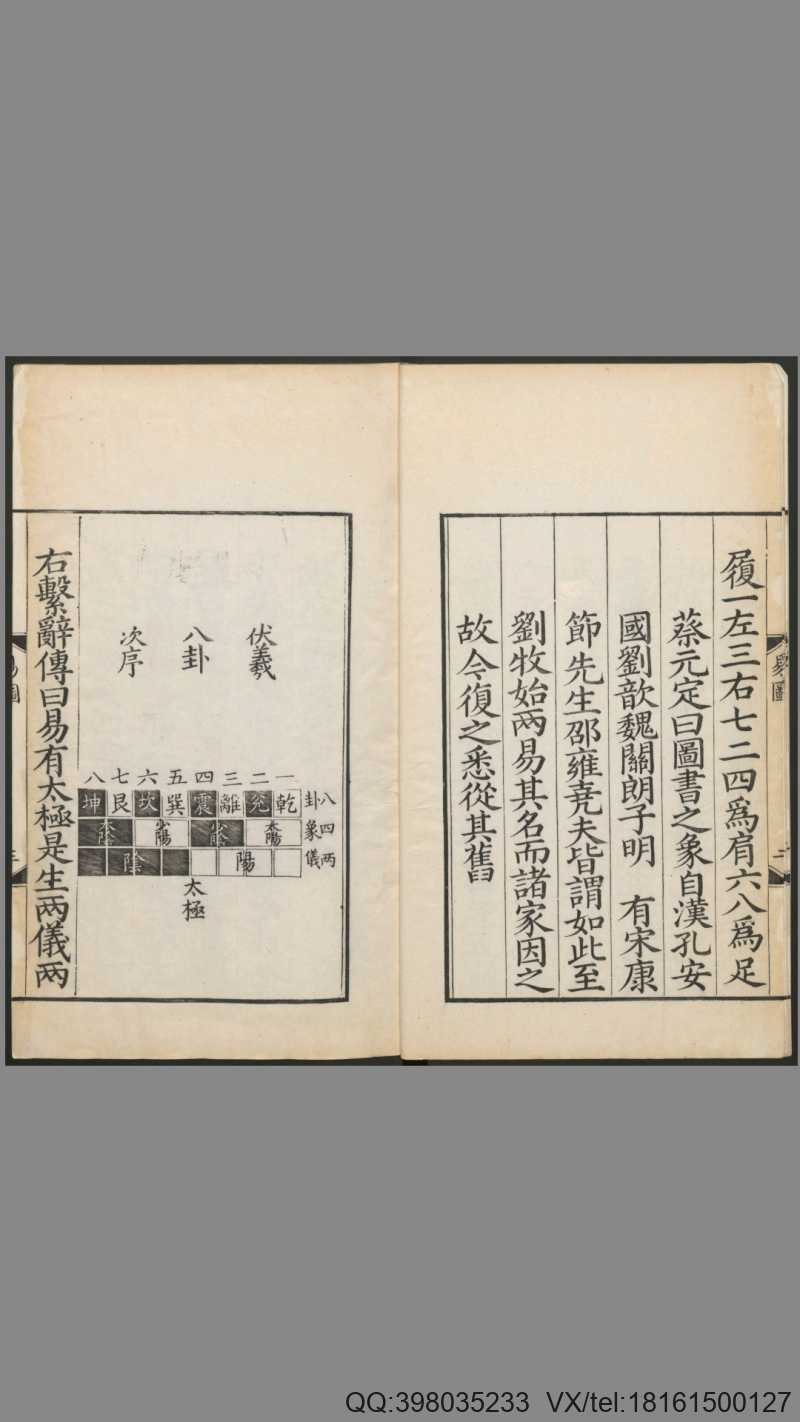 履一左三右七二四爲肩六八爲足
蔡元定曰圖書之象自漢孔安
國劉歆魏關朗子明　有宋康
節先生邵雍堯夫皆謂如此至
劉牧始兩易其名而諸家因之
故今復之悉從其舊
易圖
二
伏羲
八卦
次序
八七六五四三二一
坤艮坎巽震離兌乾
八卦
太陰 少陽 少陰 太陽
四象
陰 陽
兩儀
太極
右繫辭傳曰易有太極是生兩儀兩
QQ:398035233 VX/tel:18161500127